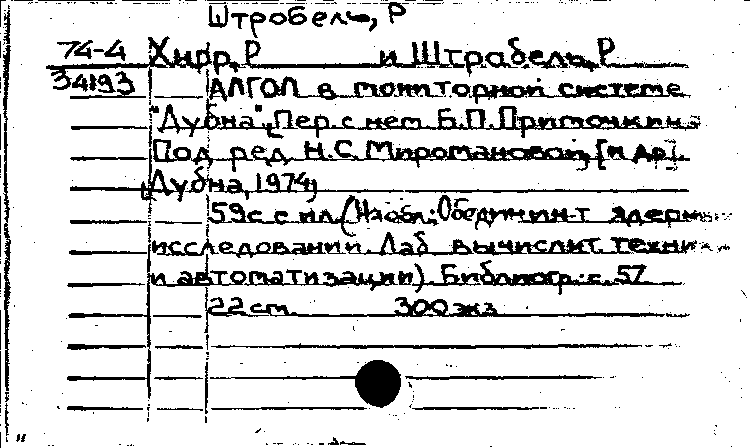 Штробель, Р
74-4 Хирр, Р и Штрабель, Р
34193 АЛГОЛ в мониторной системе
"Дубна". Пер. с нем Б.П. Приточкина
Под ред Н.С. Миромановой, [и др].
Дубна, 1974,
59с с ил. (Наобл.: Обединин-т ядерн
исследований. Лаб вычислит. техни
и автоматизации). Библиогр.: с. 57
22 cm. 300 экз